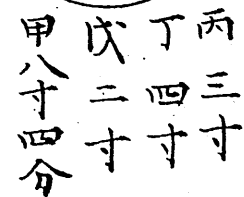 丙三寸
丁四寸
戊二寸
甲八寸四分